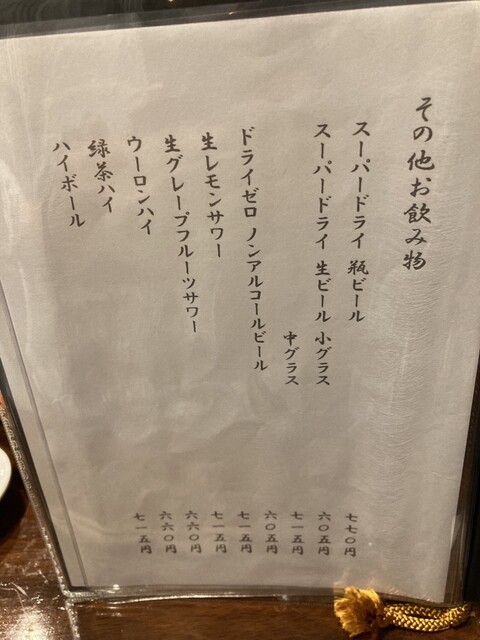 その他お飲み物
スーパードライ 瓶ビール 七七〇円
スーパードライ 生ビール 小グラス 六〇五円
中グラス 七一五円
ドライゼロ ノンアルコールビール 六〇五円
生レモンサワー 七一五円
生グレープフルーツサワー 七一五円
ウーロンハイ 六六〇円
緑茶ハイ 六六〇円
ハイボール 七一五円